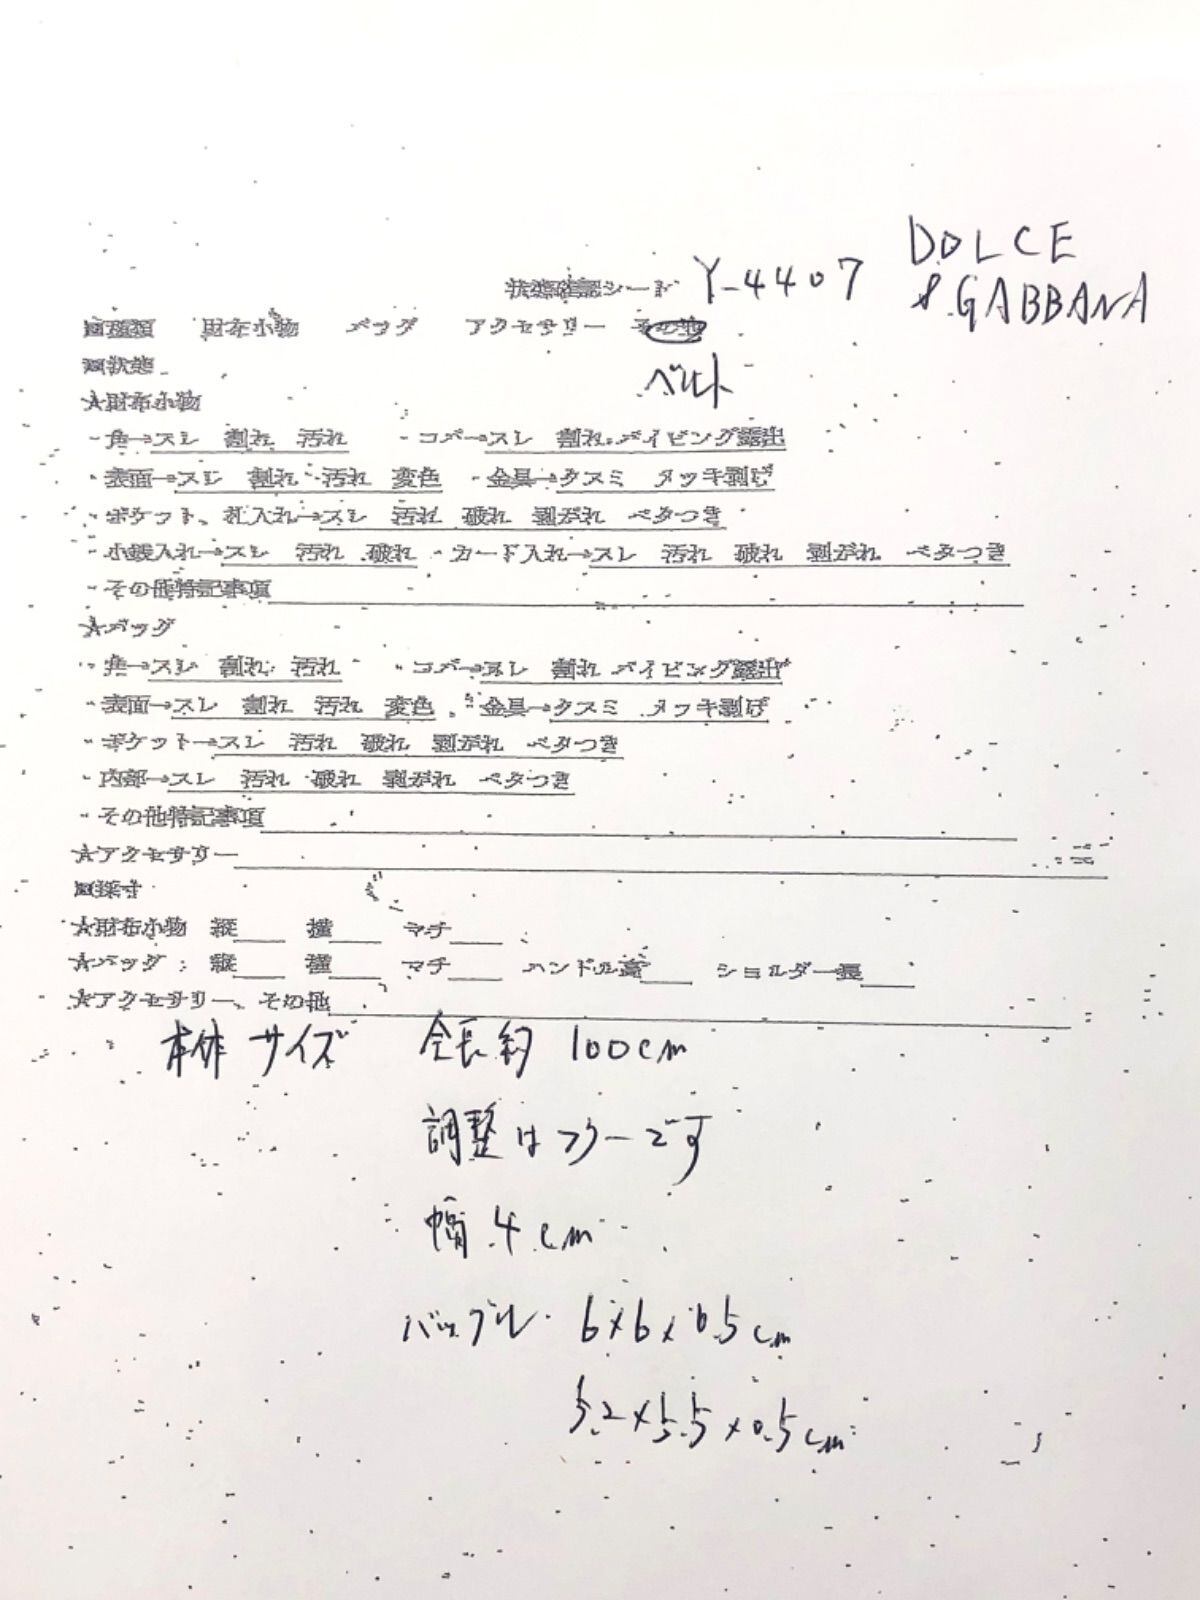 DOLCE
& GABBANA
状態確認シート Y-4407
■種類 財布小物 バッグ アクセサリー その他
ベルト
■状態
★財布小物
・角→スレ 割れ 汚れ ・コバ→スレ 割れ パイピング露出
・表面→スレ 割れ 汚れ 変色 ・金具→クスミ メッキ剥げ
・ポケット、札入れ→スレ 汚れ 破れ 剥がれ ベタつき
・小銭入れ→スレ 汚れ 破れ ・カード入れ→スレ 汚れ 破れ 剥がれ ベタつき
・その他特記事項
★バッグ
・角→スレ 割れ 汚れ ・コバ→スレ 割れ パイピング露出
・表面→スレ 割れ 汚れ 変色 ・金具→クスミ メッキ剥げ
・ポケット→スレ 汚れ 破れ 剥がれ ベタつき
・内部→スレ 汚れ 破れ 剥がれ ベタつき
・その他特記事項
★アクセサリー
■採寸
★財布小物 縦 横 マチ
★バッグ: 縦 横 マチ ハンドル高 ショルダー長
★アクセサリー、その他
本体サイズ 全長約 100cm
調整はフリーです
幅 4cm
バックル 6×6×0.5cm
5.2×5.5×0.5cm